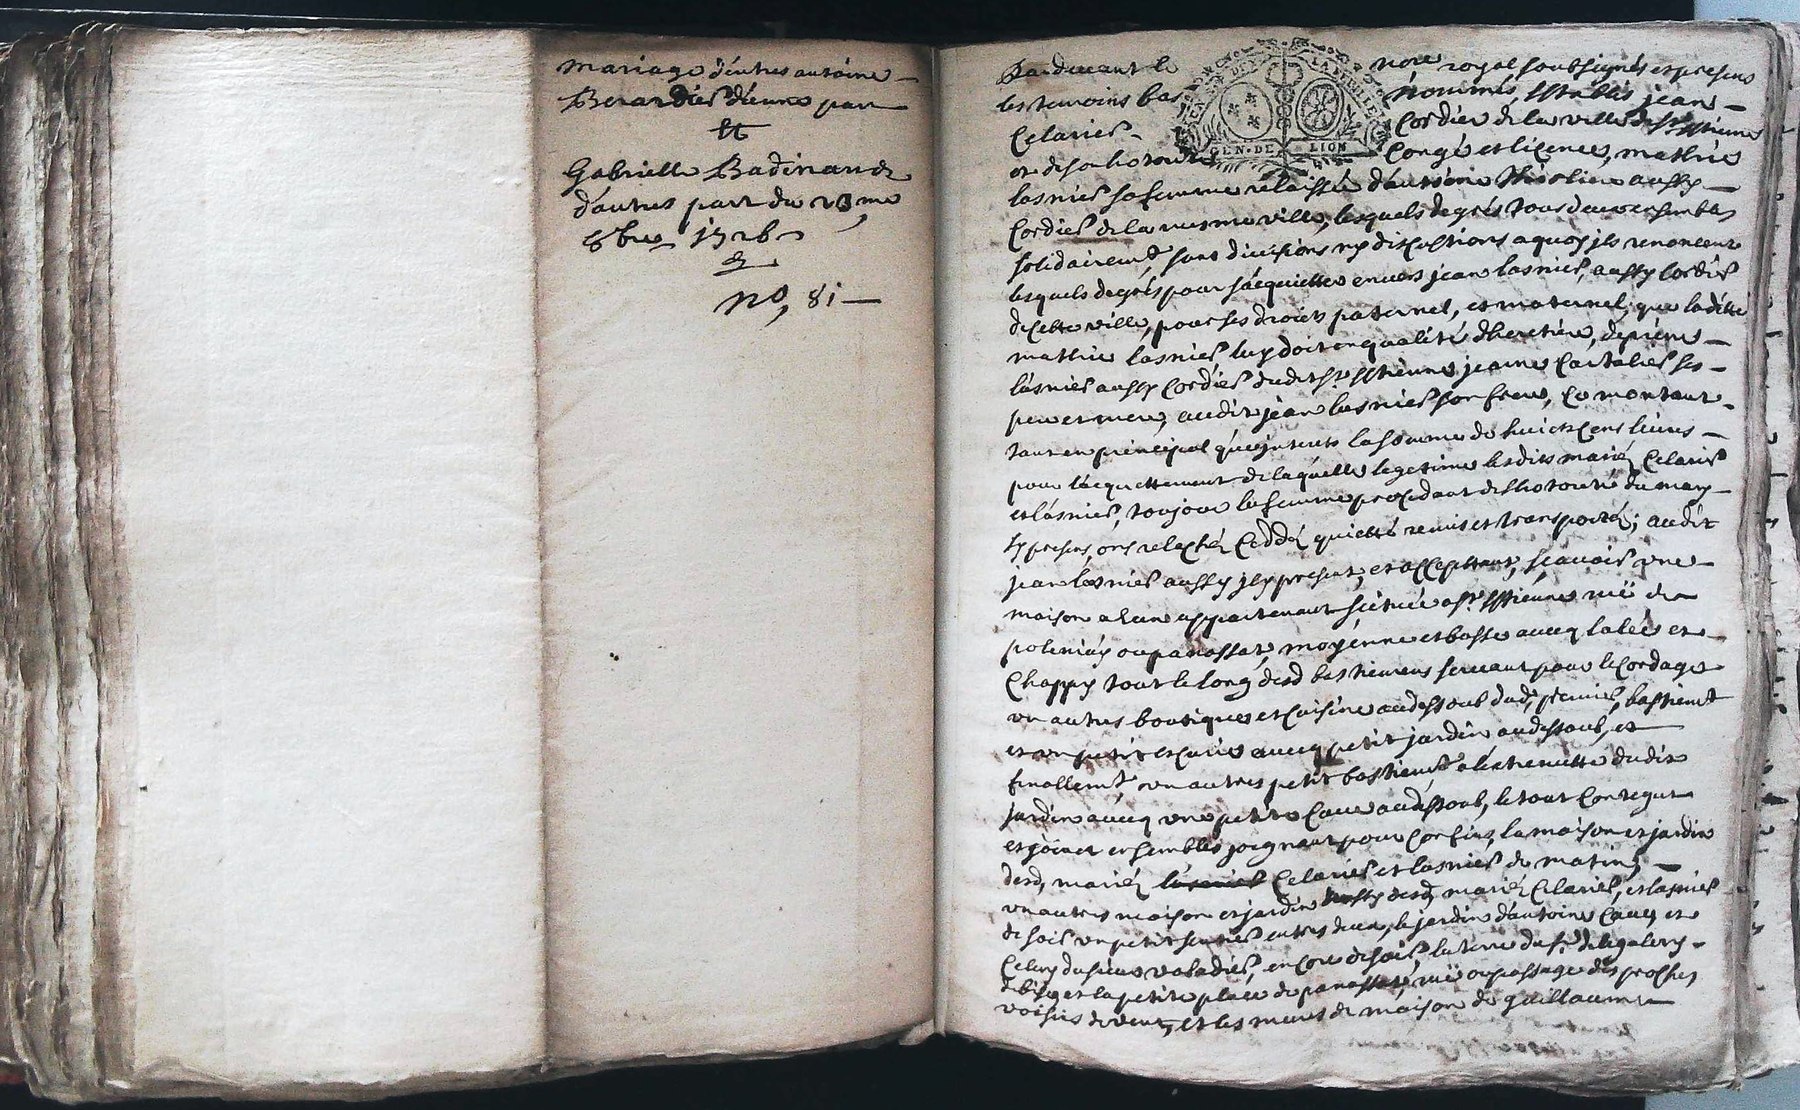 mariage d'entres antoine
Berardier d'eunne part
Et
Gabrielle Badinand
d'autres part du 23me
9bre 1726
&
no, 81
Pardevant le nore royal soubsignés et presens
les temoins bas nommés, Estables jean
Celarier Cordier de la ville de st Estienne
et de son hotorité Congé et licence, mathie
lasnier sa femme relaissée d'antoine Thiolier aussy
Cordier de la mesme ville, lesquels de grés tous deux ensembles
solidairemt sans divisions ny discutions a quoy ils renoncent
lesquels de grés pour s'acquietter envers jean lasnier, aussy Cordier
de cette ville, pour ses droits paternel, et maternel, que laditte
mathie lasnier luy doit en qualité dheretiere, de pierre
lasnier aussy Cordier dudit st Estienne jeanne Cartalier ses
pere et mere, audit jean lasnier son frere, Ce montant
tant en principal qu'a jnterets la somme de huict cens livres
pour l'acquittement de laquelle legetime lesdits mariéz Celarier
et lasnier, toujour la femme procedant de lhotorité du mary
sy presens, ont relaché Ceddé quietté remis et transporté; audit
jean lasnier aussy jsy present, et acceptant, scavoir une
maison a leur appartenant scituée a st Estienne rüe de
polinias ou panassat, moyenne et basse avecq lalée et
Chappy tout le long desd bastiemens servant pour le Cordage
un autres boutiques et Cuisine audessoub dud, premier, bastiemt
et un petit escurie avecq petit jardin audessoub, et
finallemt, un autres petit bastiemt a l'extremitte dudit
jardin avecq une petite Cave audessoub, le tout Contegut
et joinct ensembles joignant pour Confins, la maison et jardin
desd, mariéz lasnier Celarier et lasnier de matin,
un autres maison et jardin aussy desd, mariéz Celarier, et lasnier
de soir un petit sentier entres deux, le jardin d'antoine et
Celuy du sieur valadier, encore de soir la terre du sr
de bize et la petite place de panassat, rüe ou passage des proches
voisins de vent, et les murs de maison de guillaume
GEN. DE LION